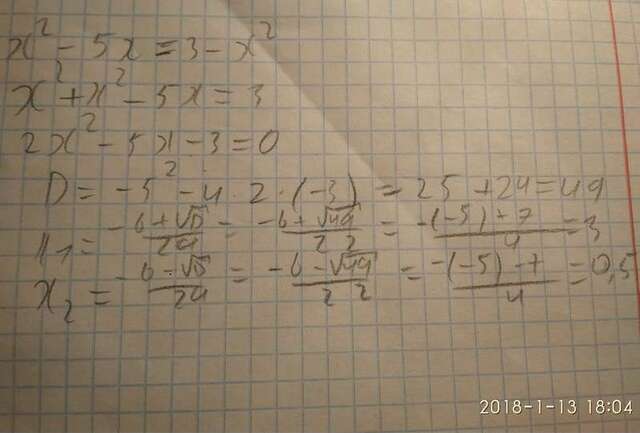 x² - 5x = 3 - x²
x² + x² - 5x = 3
2x² - 5x - 3 = 0
D = -5² - 4 · 2 · (-3) = 25 + 24 = 49
x₁ = (-b + √D)/(2a) = (-b + √49)/(2 2) = (-(-5) + 7)/4 = 3
x₂ = (-b - √D)/(2a) = (-b - √49)/(2 2) = (-(-5) - 7)/4 = 0,5
2018-1-13 18:04